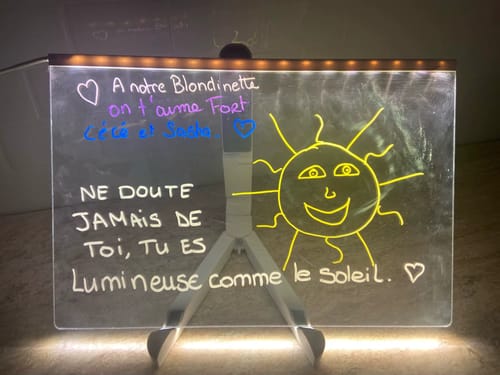 A notre Blondinette
on t'aime Fort
Cécé et Sacha.
NE DOUTE
JAMAIS DE
Toi, TU ES
Lumineuse comme le soleil.